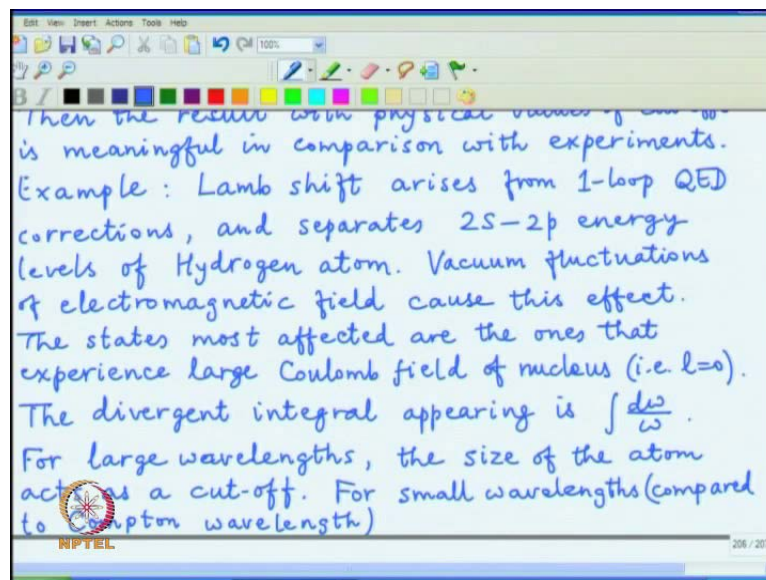 Edit View Insert Actions Tools Help
100%
Then the result with physical values of cut-off
is meaningful in comparison with experiments.
Example : Lamb shift arises from 1-loop QED
corrections, and separates 2S-2p energy
levels of Hydrogen atom. Vacuum fluctuations
of electromagnetic field cause this effect.
The states most affected are the ones that
experience large Coulomb field of nucleus (i.e. l=0).
The divergent integral appearing is ∫ dω/ω .
For large wavelengths, the size of the atom
acts as a cut-off. For small wavelengths (compared
to Compton wavelength)
NPTEL
206 / 207